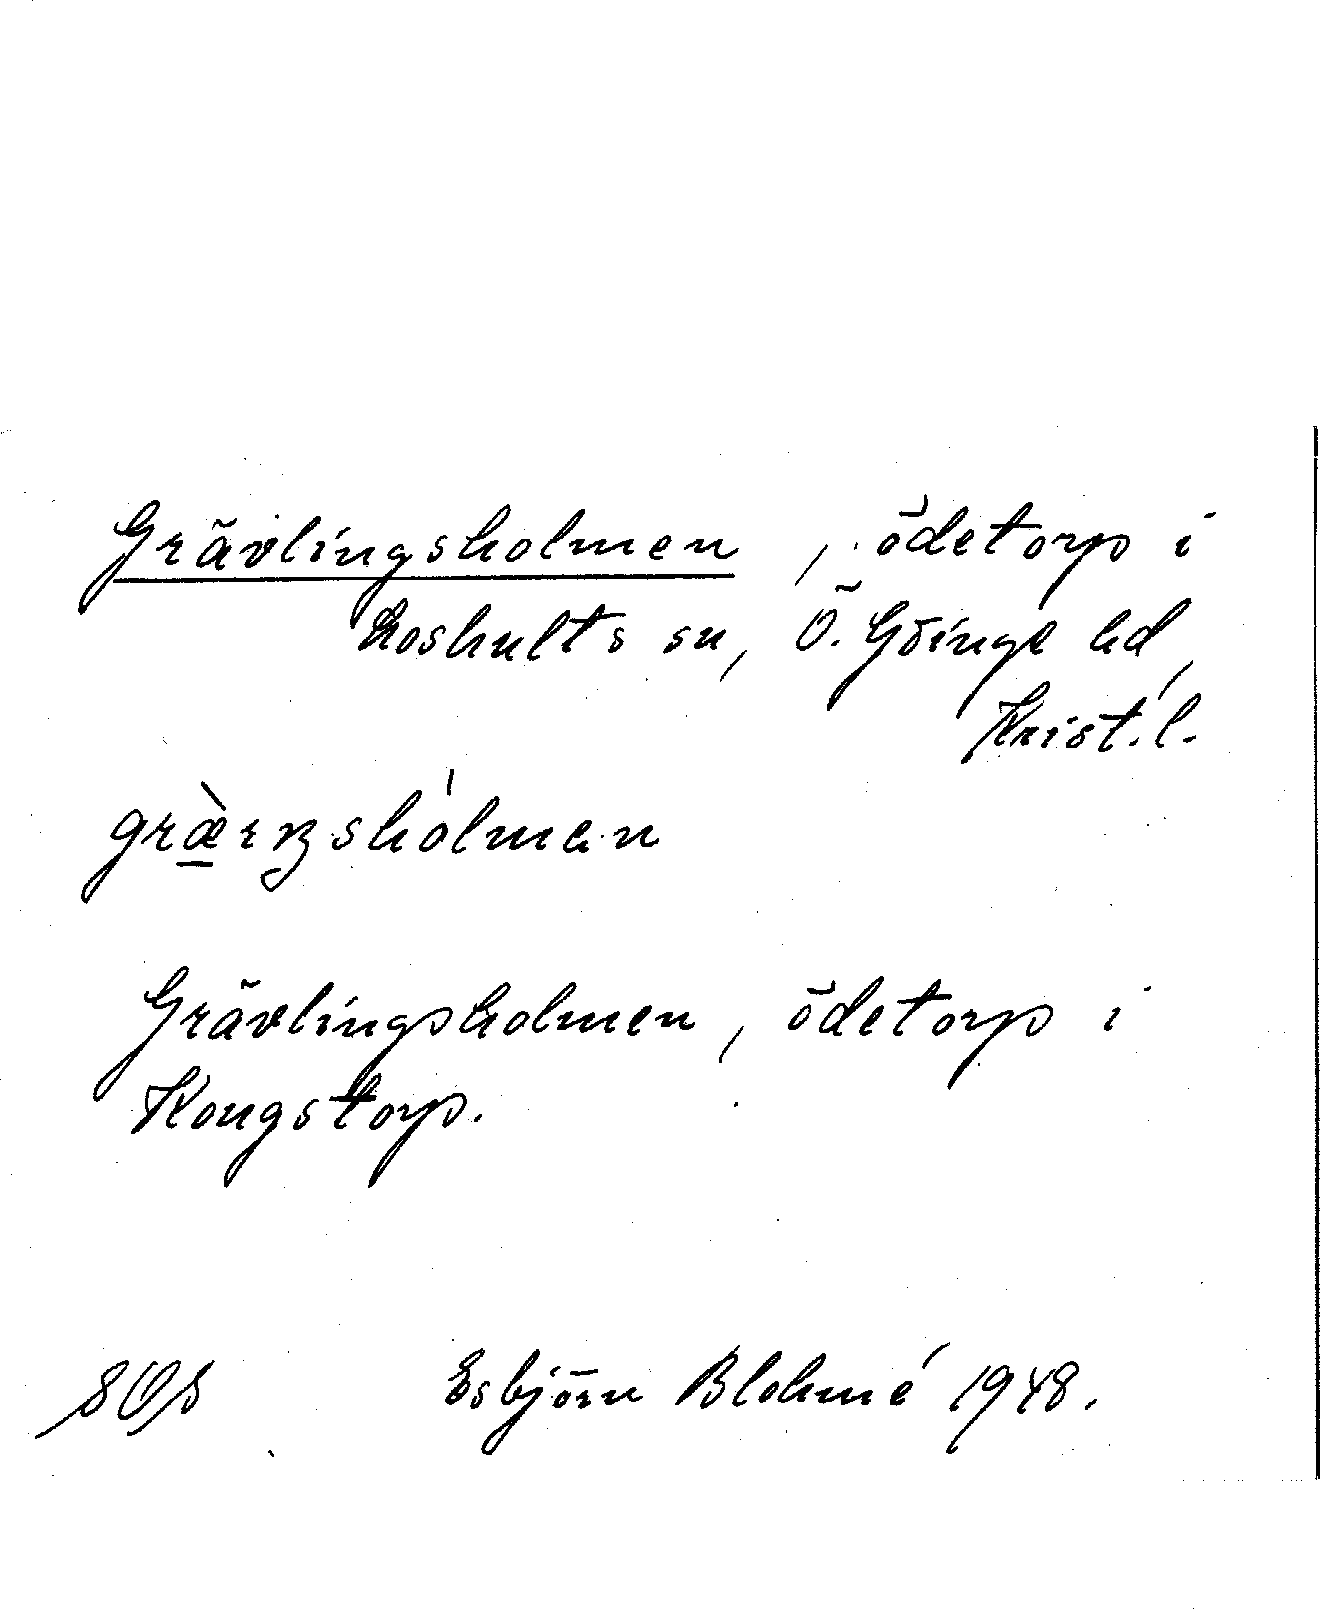 Grävlingsholmen, ödetorp i
Loshults sn, Ö. Göinge hd,
Krist. l.
Grävlingsholmen, ödetorp i
Kongstorp.
Esbjörn Blohmé 1948.